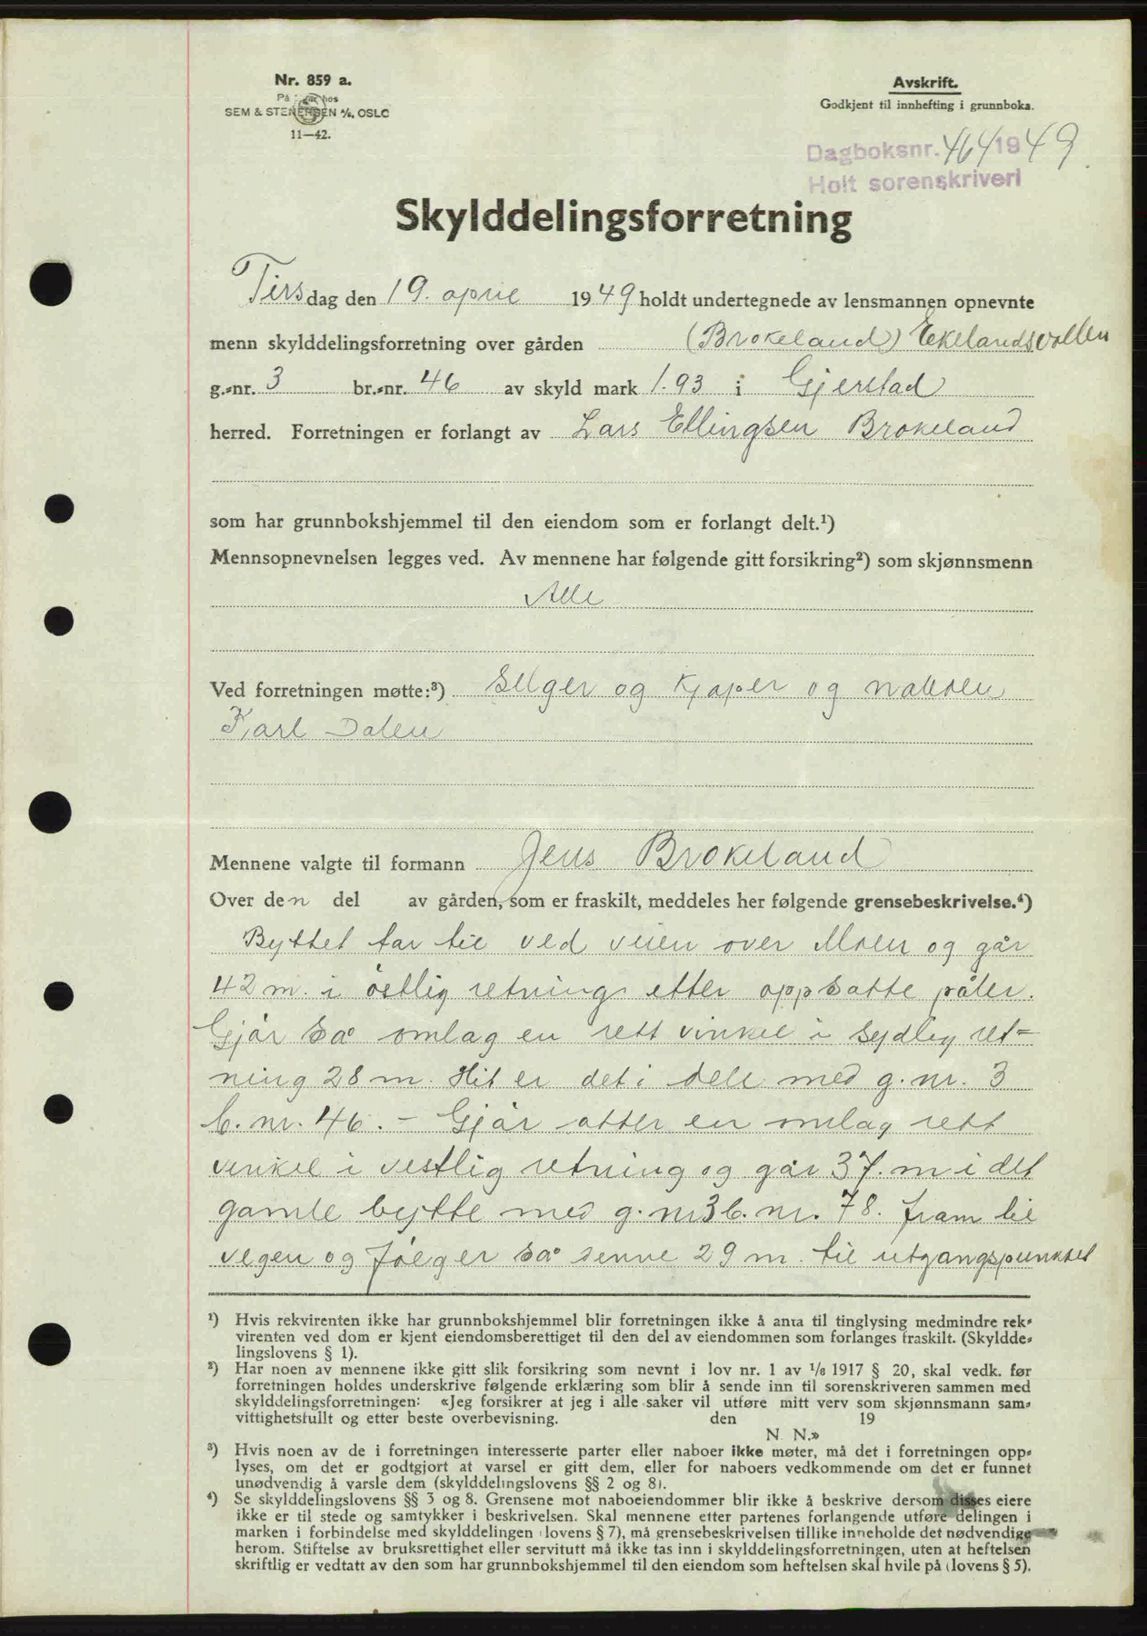 Nr. 859 a.
På lager hos
SEM & STENERSEN A/S, OSLO
11—42.
Avskrift.
Godkjent til innhefting i grunnboka.
Dagboksnr. 464 1949
Holt sorenskriveri
Skylddelingsforretning
Tirsdag den 19. april 1949 holdt undertegnede av lensmannen opnevnte
menn skylddelingsforretning over gården (Brokeland) Ekelandsvollen
g.-nr. 3 br.-nr. 46 av skyld mark 1.93 i Gjerstad
herred. Forretningen er forlangt av Lars Ellingsen Brokeland
som har grunnbokshjemmel til den eiendom som er forlangt delt.¹)
Mennsopnevnelsen legges ved. Av mennene har følgende gitt forsikring²) som skjønnsmenn
Alle
Ved forretningen møtte:³) Selger og kjøper og naboen
Karl Dalen
Mennene valgte til formann Jens Brokeland
Over den del av gården, som er fraskilt, meddeles her følgende grensebeskrivelse.⁴)
Byttet tar til ved veien over Moen og går
42 m. i östlig retning etter oppsatte påler.
Gjör så omlag en rett vinkel i sydlig ret=
ning 28 m. Hit er det i dele med g. nr. 3
b. nr. 46. - Gjör atter en omlag rett
vinkel i vestlig retning og går 37. m i det
gamle bytte med g. nr 3 b. nr. 78. fram til
vegen og fölger så denne 29 m. til utgangspunktet
¹) Hvis rekvirenten ikke har grunnbokshjemmel blir forretningen ikke å anta til tinglysing medmindre rek-
virenten ved dom er kjent eiendomsberettiget til den del av eiendommen som forlanges fraskilt. (Skyldde-
lingslovens § 1).
²) Har noen av mennene ikke gitt slik forsikring som nevnt i lov nr. 1 av 1/8 1917 § 20, skal vedk. før
forretningen holdes underskrive følgende erklæring som blir å sende inn til sorenskriveren sammen med
skylddelingsforretningen: «Jeg forsikrer at jeg i alle saker vil utføre mitt verv som skjønnsmann sam-
vittighetsfullt og etter beste overbevisning. den 19
N. N.»
³) Hvis noen av de i forretningen interesserte parter eller naboer ikke møter, må det i forretningen opp-
lyses, om det er godtgjort at varsel er gitt dem, eller for naboers vedkommende om det er funnet
unødvendig å varsle dem (skylddelingslovens §§ 2 og 8).
⁴) Se skylddelingslovens §§ 3 og 8. Grensene mot naboeiendommer blir ikke å beskrive dersom disses eiere
ikke er til stede og samtykker i beskrivelsen. Skal mennene etter partenes forlangende utføre delingen i
marken i forbindelse med skylddelingen (lovens § 7), må grensebeskrivelsen tillike inneholde det nødvendige
herom. Stiftelse av bruksrettighet eller servitutt må ikke tas inn i skylddelingsforretningen, uten at heftelsen
skriftlig er vedtatt av den som har grunnbokshjemmel til den eiendom som heftelsen skal hvile på (lovens § 5).